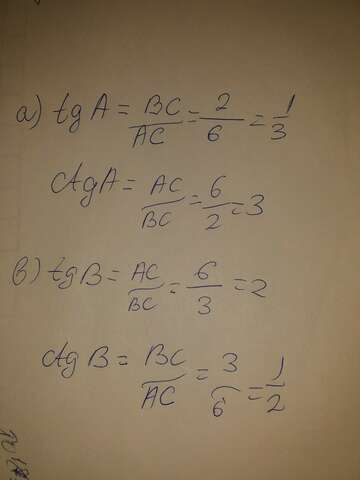 a) tg A = BC/AC = 2/6 = 1/3
ctg A = AC/BC = 6/2 = 3
б) tg B = AC/BC = 6/3 = 2
ctg B = BC/AC = 3/6 = 1/2